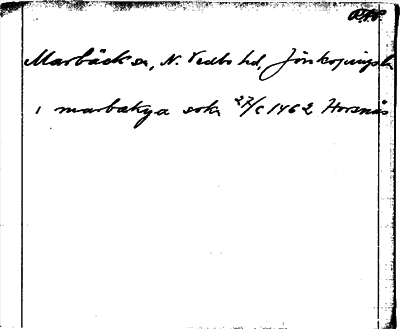 Marbäck sn, N. Vedbo hd, Jönköpings l.
i marbækya sokn 27/6 1462 Horsnäs